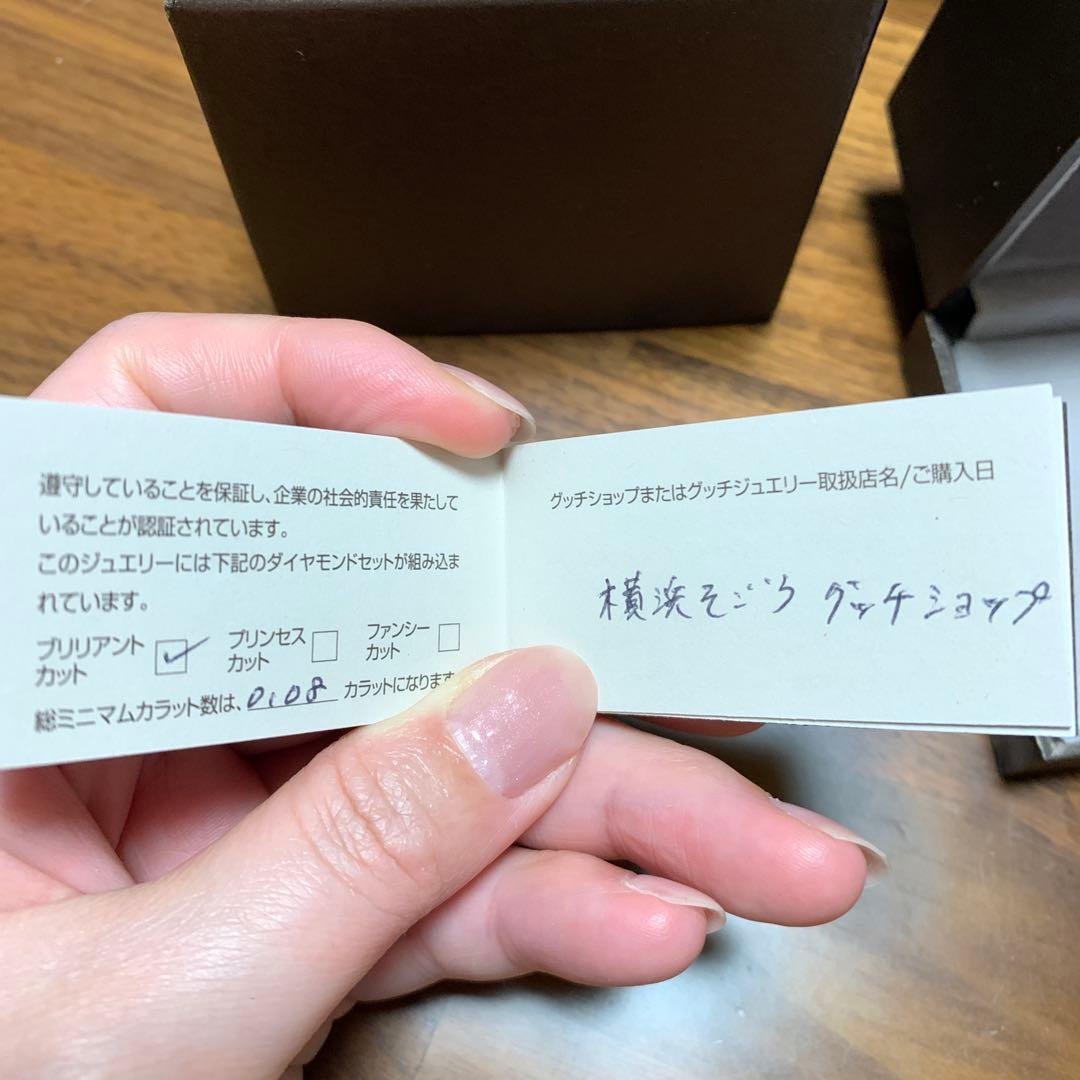 遵守していることを保証し、企業の社会的責任を果たして
いることが認証されています。
このジュエリーには下記のダイヤモンドセットが組み込ま
れています。
ブリリアントカット ✓ プリンセスカット □ ファンシーカット □
総ミニマムカラット数は、0.08 カラットになります
グッチショップまたはグッチジュエリー取扱店名/ご購入日
横浜そごう グッチショップ